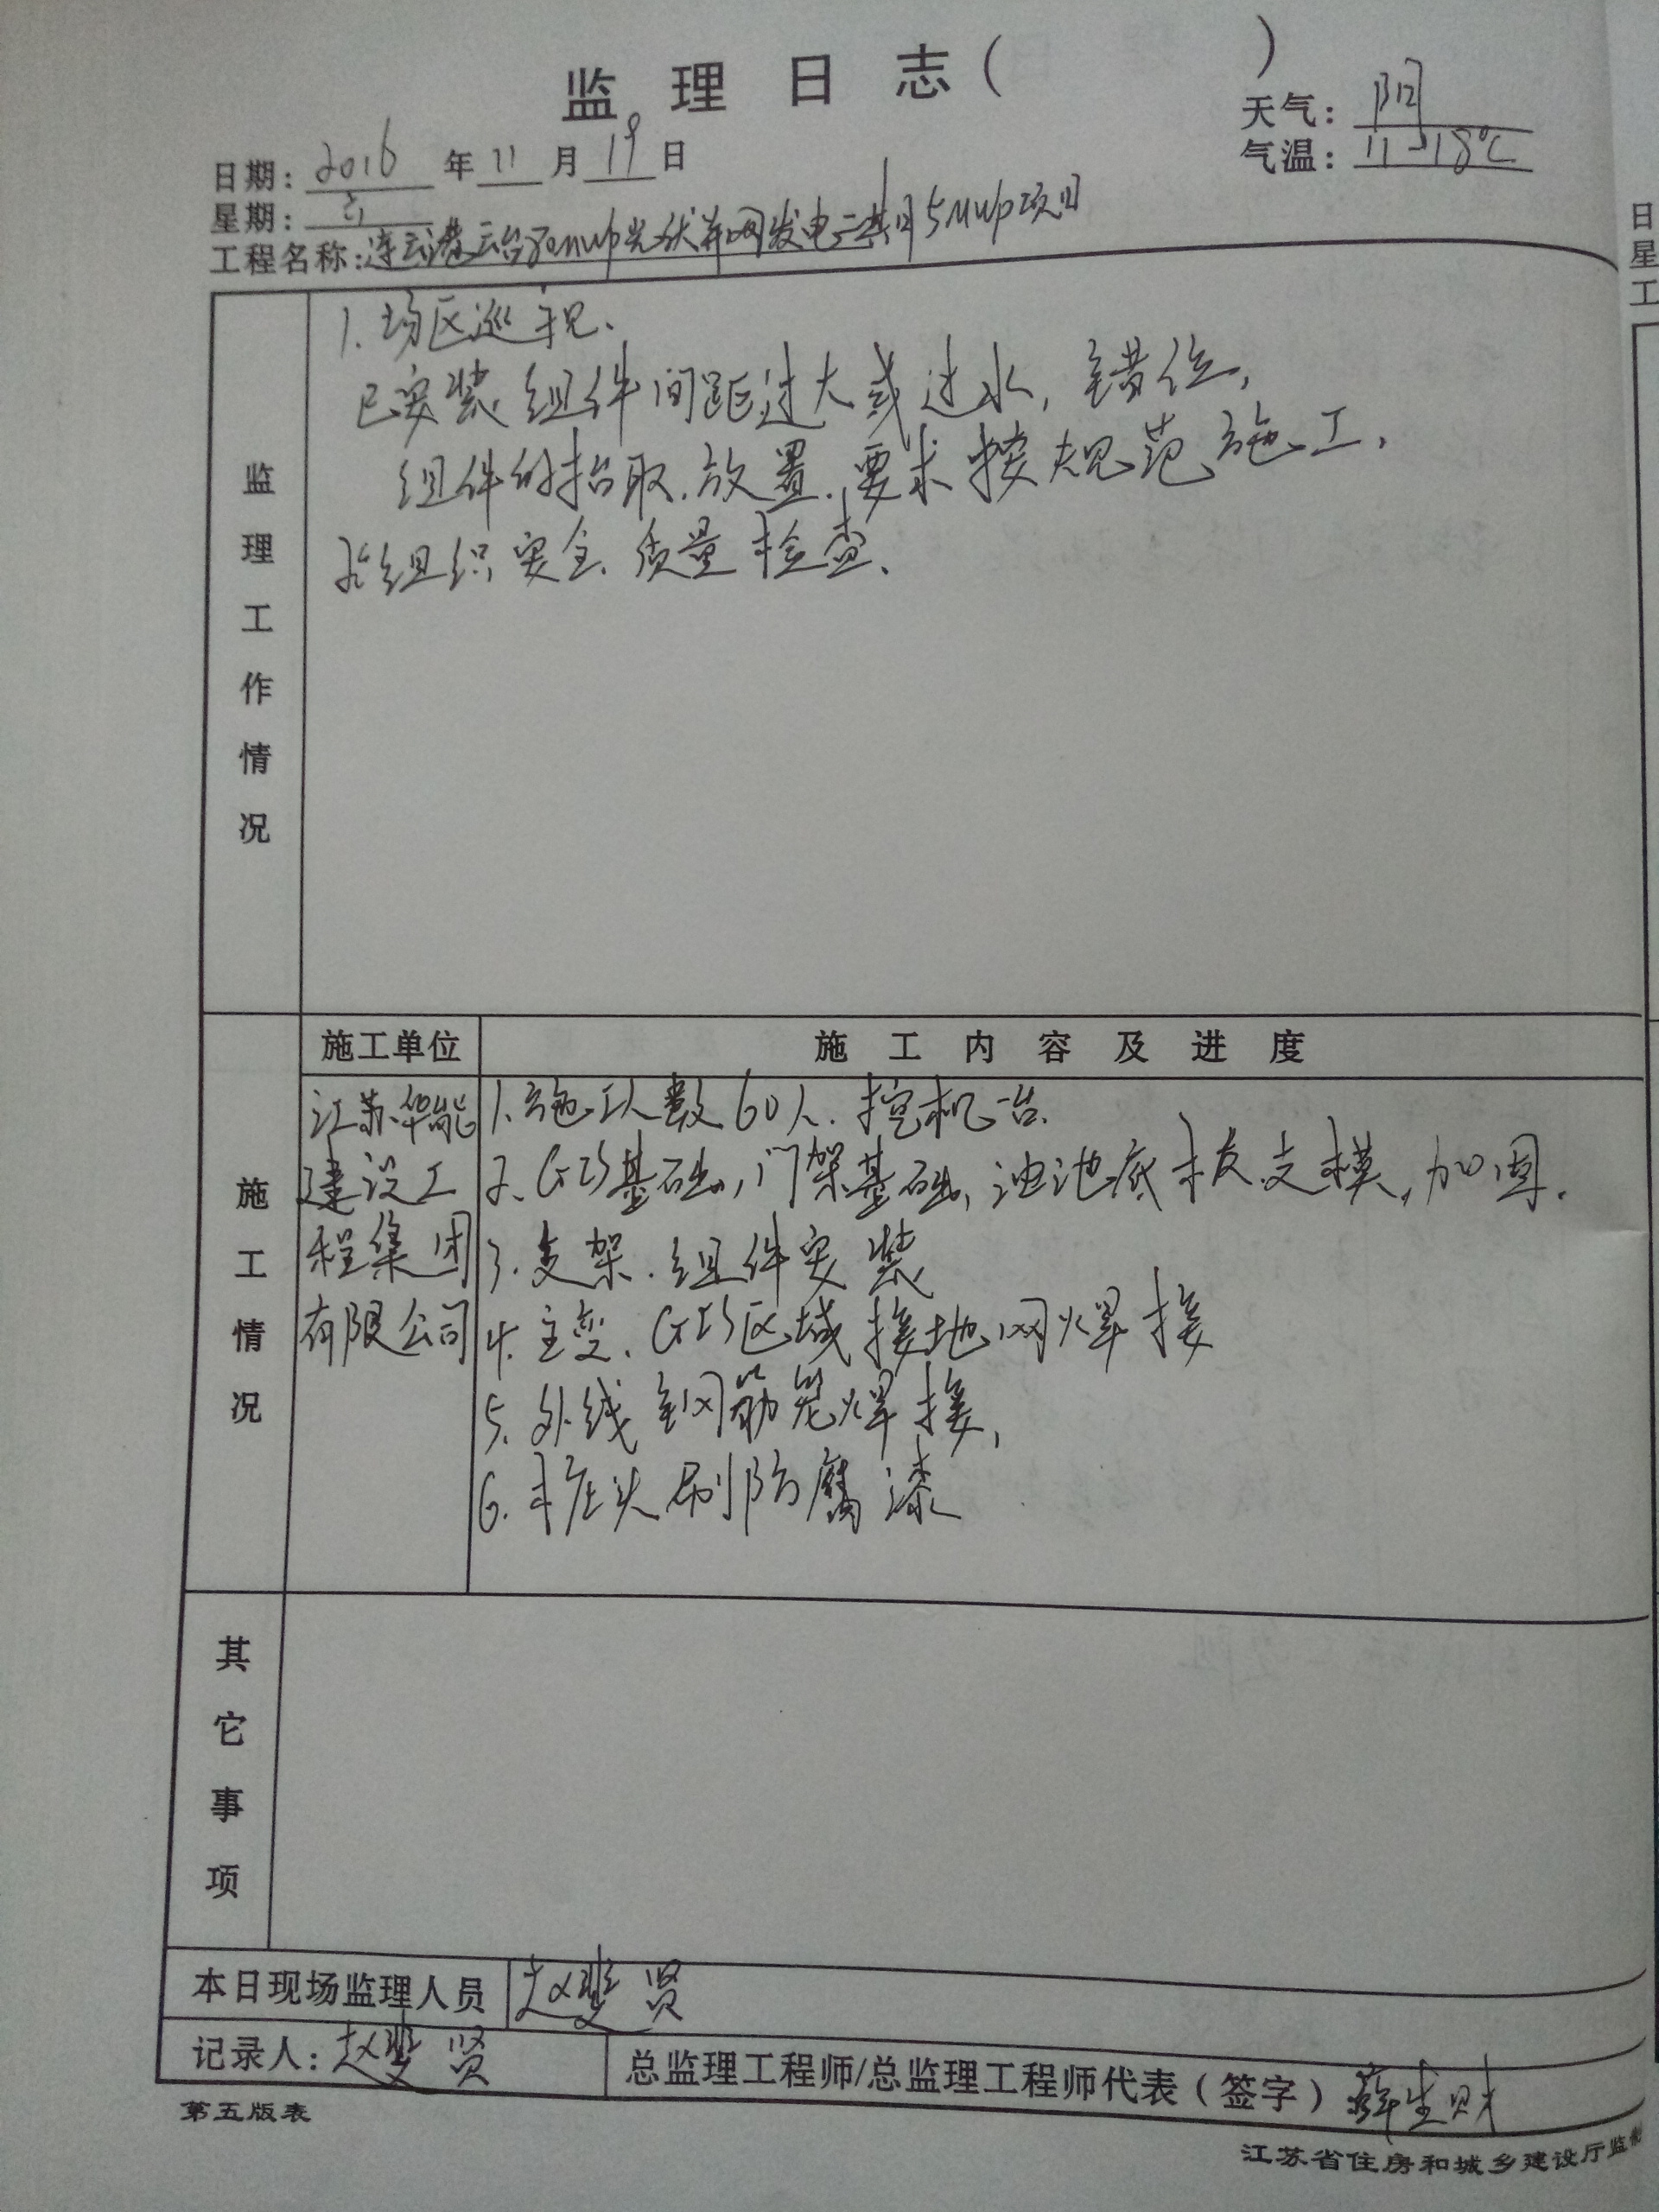 监理日志（ ）
天气：阴
日期：2016年11月19日
气温：11~18℃
星期：六
工程名称：连云港云台 光伏并网发电二期5MWp项目
监理工作情况
1.场区巡视、
已安装组件间距过大或过小，错位，
组件的抬取、放置、要求按规范施工、
组织安全、质量检查、
施工单位
施工内容及进度
施工情况
江苏华能
建设工
程集团
有限公司
1.施工人数60人、挖机一台、
2、GIS基础，门架基础，油池底板支模，加固、
3、支架、组件安装
4.主变、GIS区域接地网焊接
5.外线钢筋笼焊接、
6.桩头刷防腐漆
其它事项
本日现场监理人员 赵斐贤
记录人：赵斐贤
总监理工程师/总监理工程师代表（签字）薛生财
第五版表
江苏省住房和城乡建设厅监制
日
星
工